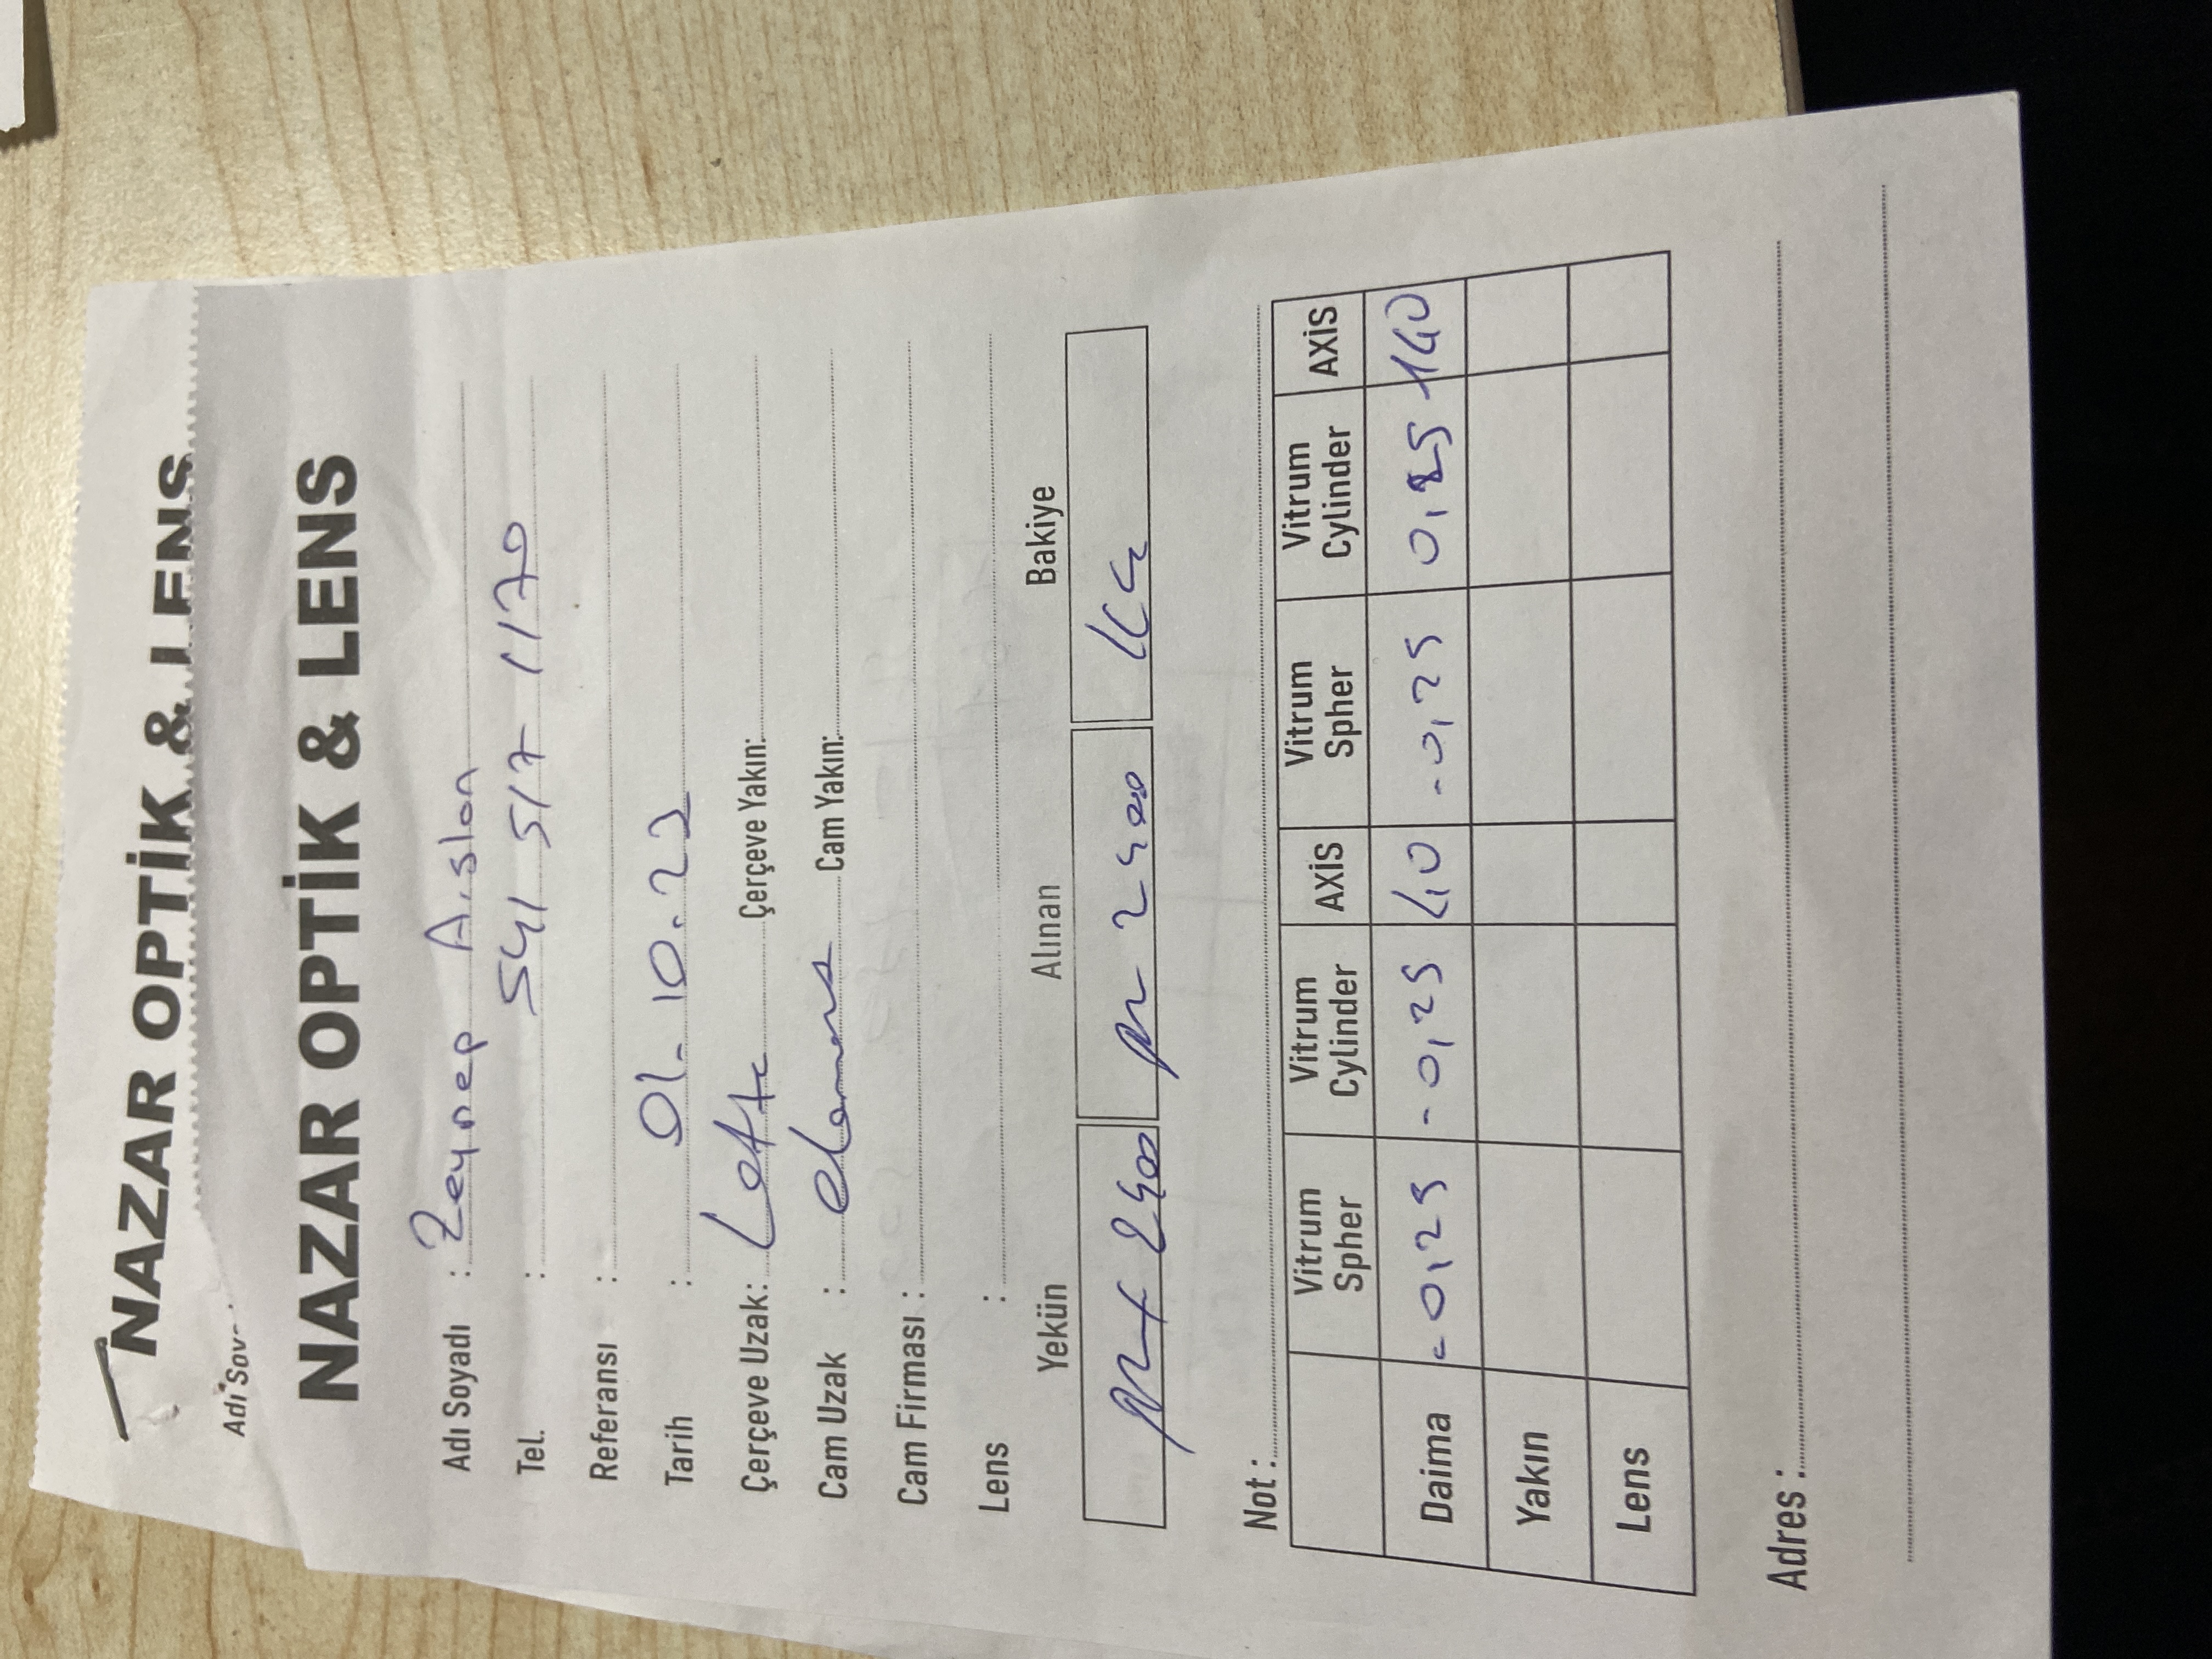 NAZAR OPTİK & LENS
Adı
NAZAR OPTİK & LENS
Adı Soyadı : Zeynep Arslan
Tel. : 541 517 1170
Referansı :
Tarih : 01.10.22
Çerçeve Uzak: Çerçeve Yakın:
Cam Uzak : Cam Yakın:
Cam Firması :
Lens :
Yekün Alınan Bakiye
2400 2400
Not :
Vitrum Spher Vitrum Cylinder AXİS Vitrum Spher Vitrum Cylinder AXİS
Daima -0,25 -0,25 40 -0,25 140
Yakın
Lens
Adres :